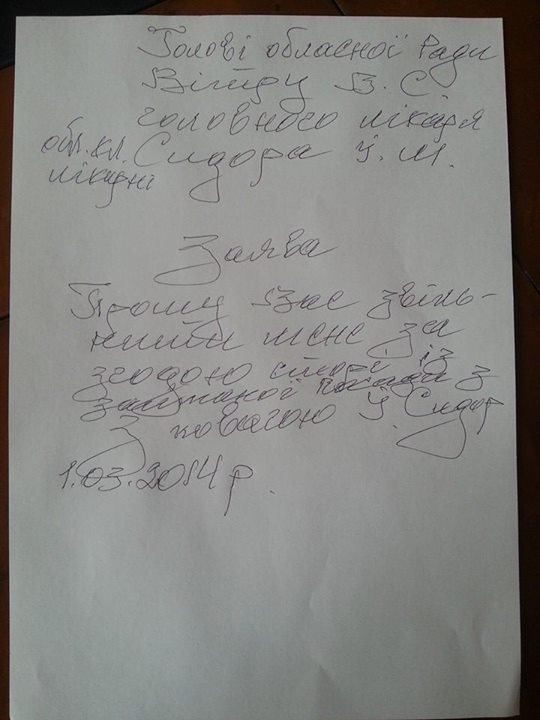 Голові обласної Ради
Вітру В. С.
головного лікаря
обл. кл. Сидора І. М.
лікарні
Заява
Прошу Вас звіль-
нити мене за
згодою сторін із
займаної посади
З повагою І. Сидор
1.03.2014 р.